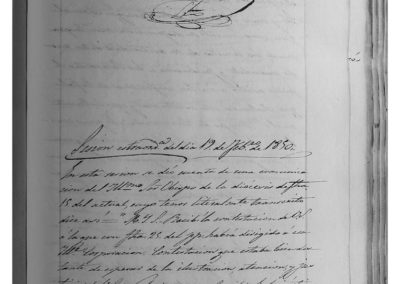 Sesion estraord.a del dia 19 de Feb.o de 1850.
En esta sesion se dio cuenta de una comunica-
cion del Yltmo. Sor Obispo de la diocesis de fha
15 del actual, cuyo tenor literalmente transcrito
dice asi = Recibi la contestacion de V.S.
á la que con fha 25 del pp. habia dirigido á esa
Corporacion. Contestacion que estaba bien dis-
tante de esperar de la ilustracion, atencion, y jus-